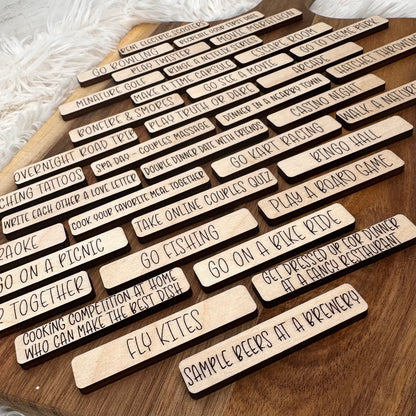 RENT ELECTRIC SCOOTERS
RECREATE YOUR FIRST DATE
MOVIE MARATHON
GO BOWLING
PLAY TWISTER
MUSEUM
ESCAPE ROOM
GO TO THEME PARK
MINIATURE GOLF
BINGE A NETFLIX SERIES
ARCADE
HATCHET THROWING
MAKE A TIME CAPSULE
GO SEE A MOVIE
BONFIRE & SMORES
PLAY TRUTH OR DARE
DINNER IN A NEARBY TOWN
WALK A NATURE
OVERNIGHT ROAD TRIP
SPA DAY - COUPLES MASSAGE
CASINO NIGHT
CHING TATTOOS
DOUBLE DINNER DATE WITH FRIENDS
GO KART RACING
BINGO HALL
WRITE EACH OTHER A LOVE LETTER
COOK YOUR FAVORITE MEAL TOGETHER
TAKE ONLINE COUPLES QUIZ
PLAY A BOARD GAME
RAOKE
GO ON A PICNIC
GO FISHING
GO ON A BIKE RIDE
GET DRESSED UP FOR DINNER
AT A FANCY RESTAURANT
TOGETHER
COOKING COMPETITION AT HOME
WHO CAN MAKE THE BEST DISH
FLY KITES
SAMPLE BEERS AT A BREWERY